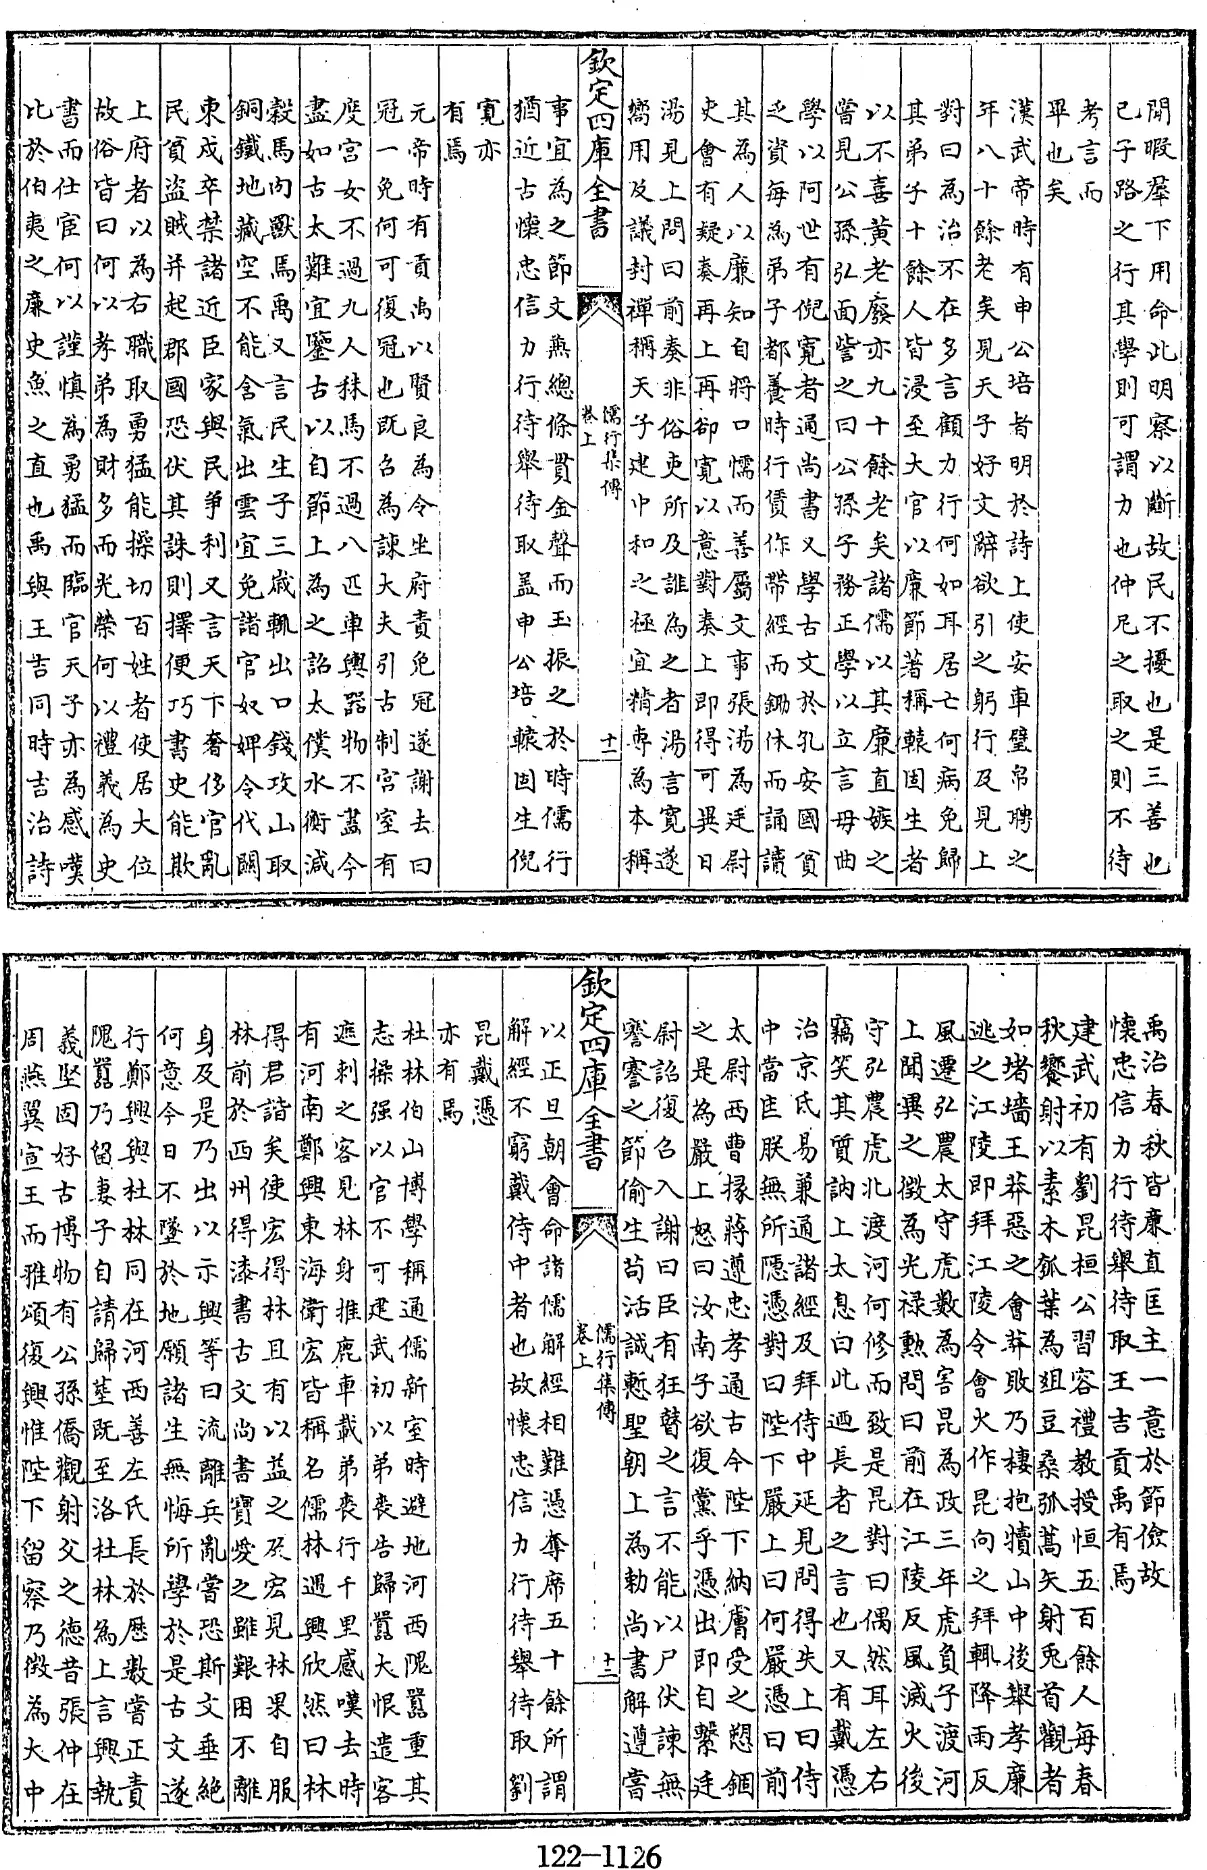 閒暇羣下用命此明察以斷故民不擾也是三善也
已子路之行其學則可謂力也仲尼之取之則不待
考言而
畢也矣
漢武帝時有申公培者明於詩上使安車璧帛聘之
年八十餘老矣見天子好文辭欲引之躬行及見上
對曰為治不在多言顧力行何如耳居亡何病免歸
其弟子十餘人皆浸至大官以廉節著稱轅固生者
以不喜黃老廢亦九十餘老矣諸儒以其廉直嫉之
嘗見公孫弘面訾之曰公孫子務正學以立言毋曲
學以阿世有倪寬者通尚書又學古文於孔安國貧
乏資每為弟子都養時行賃作帶經而鋤休而誦讀
其為人以廉知自將口懦而善屬文事張湯為廷尉
史會有疑奏再上再卻寬以意對奏上即得可異日
湯見上問曰前奏非俗吏所及誰為之者湯言寬遂
嚮用及議封禪稱天子建中和之極宜精專為本稱
欽定四庫全書
儒行集傳
卷上
十二
事宜為之節文兼總條貫金聲而玉振之於時儒行
猶近古懷忠信力行待舉待取蓋申公培轅固生倪
寬亦
有焉
元帝時有貢禹以賢良為令坐府責免冠遂謝去曰
冠一免何可復冠也既召為諫大夫引古制宮室有
度宮女不過九人秣馬不過八匹車輿器物不盡今
盡如古太難宜鑒古以自節上為之詔太僕水衡減
穀馬肉獸馬禹又言民生子三歲輒出口錢攻山取
銅鐵地藏空不能含氣出雲宜免諸官奴婢令代關
東戍卒禁諸近臣家與民爭利又言天下奢侈官亂
民貧盜賊并起郡國恐伏其誅則擇便巧書史能欺
上府者以為右職取勇猛能操切百姓者使居大位
故俗皆曰何以孝弟為財多而光榮何以禮義為史
書而仕宦何以謹慎為勇猛而臨官天子亦為感嘆
比於伯夷之廉史魚之直也禹與王吉同時吉治詩
禹治春秋皆廉直匡主一意於節儉故
懷忠信力行待舉待取王吉貢禹有焉
建武初有劉昆桓公習容禮教授恒五百餘人每春
秋饗射以素木瓠葉為俎豆桑弧蒿矢射兎首觀者
如堵墻王莽惡之會莽敗乃棲抱犢山中後舉孝廉
逃之江陵即拜江陵令會火作昆向之拜輒降雨反
風遷弘農太守虎數為害昆為政三年虎負子渡河
上聞異之徵為光祿勲問曰前在江陵反風滅火後
守弘農虎北渡河何修而致是昆對曰偶然耳左右
竊笑其質訥上太息曰此迺長者之言也又有戴憑
治京氏易兼通諸經及拜侍中延見問得失上曰侍
中當匡朕無所隱憑對曰陛下嚴上曰何嚴憑曰前
太尉西曹掾蔣遵忠孝通古今陛下納膚受之愬錮
之是為嚴上怒曰汝南子欲復黨乎憑出即自繫廷
尉詔復召入謝曰臣有狂瞽之言不能以尸伏諫無
謇謇之節偷生苟活誠慙聖朝上為勅尚書解遵嘗
欽定四庫全書
儒行集傳
卷上
十三
以正旦朝會命諸儒解經相難憑奪席五十餘所謂
解經不窮戴侍中者也故懷忠信力行待舉待取劉
昆戴憑
亦有焉
杜林伯山博學稱通儒新室時避地河西隗囂重其
志操强以官不可建武初以弟喪告歸囂大恨遣客
遮刺之客見林身推鹿車載弟喪行千里感嘆去時
有河南鄭興東海衛宏皆稱名儒林遇興欣然曰林
得君諧矣使宏得林且有以益之及宏見林果自服
林前於西州得漆書古文尚書寶愛之雖艱困不離
身及是乃出以示興等曰流離兵亂嘗恐斯文垂絕
何意今日不墜於地願諸生無悔所學於是古文遂
行鄭興與杜林同在河西善左氏長於歷數嘗正責
隗囂乃留妻子自請歸塟既至洛杜林為上言興執
義堅固好古博物有公孫僑觀射父之德昔張仲在
周燕翼宣王而雅頌復興惟陛下留察乃徵為大中
122-1126